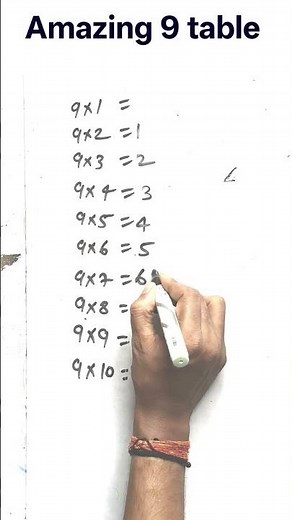 Amazing 9 table
9×1 =
9×2 = 1
9×3 = 2
9×4 = 3
9×5 = 4
9×6 = 5
9×7 = 6
9×8 =
9×9 =
9×10 =